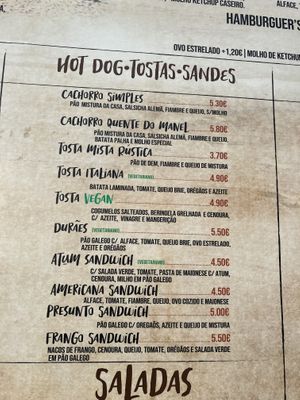 MOLHO KETCHUP CASEIRO.
ALFACE,
HAMBURGUER'S
OVO ESTRELADO +1,20€ | MOLHO DE KETCHU
HOT DOG•TOSTAS•SANDES
CACHORRO SIMPLES 5.30€
PÃO MISTURA DA CASA, SALSICHA ALEMÃ, FIAMBRE E QUEIJO, S/MOLHO
CACHORRO QUENTE DO MANEL 5.80€
PÃO MISTURA DA CASA, SALSICHA ALEMÃ, FIAMBRE E QUEIJO,
BATATA PALHA E MOLHO ESPECIAL
TOSTA MISTA RUSTICA 3.70€
PÃO DE DEM, FIAMBRE E QUEIJO DE MISTURA
TOSTA ITALIANA (VEGETARIANO) 4.90€
BATATA LAMINADA, TOMATE, QUEIJO BRIE, ORÉGÃOS E AZEITE
TOSTA VEGAN 4.90€
COGUMELOS SALTEADOS, BERINGELA GRELHADA E CENOURA,
C/ AZEITE, VINAGRE E MANGERICÃO
DURÃES (VEGETARIANO) 5.50€
PÃO GALEGO C/ ALFACE, TOMATE, QUEIJO BRIE, OVO ESTRELADO,
AZEITE E ORÉGÃOS
ATUM SANDWICH (VEGETARIANO) 4.50€
C/ SALADA VERDE, TOMATE, PASTA DE MAIONESE C/ ATUM,
CENOURA, MILHO EM PÃO GALEGO
AMERICANA SANDWICH 4.50€
ALFACE, TOMATE, FIAMBRE, QUEIJO, OVO COZIDO E MAIONESE
PRESUNTO SANDWICH 5.00€
PÃO GALEGO C/ OREGÃOS, AZEITE E QUEIJO DE MISTURA
FRANGO SANDWICH 5.50€
NACOS DE FRANGO, CENOURA, QUEIJO, TOMATE, ORÉGÃOS E SALADA VERDE
EM PÃO GALEGO
SALADAS